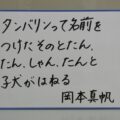 タンバリンって名前を
つけたそのとたん、
たん、しゃん、たんと
子犬がはねる
岡本真帆